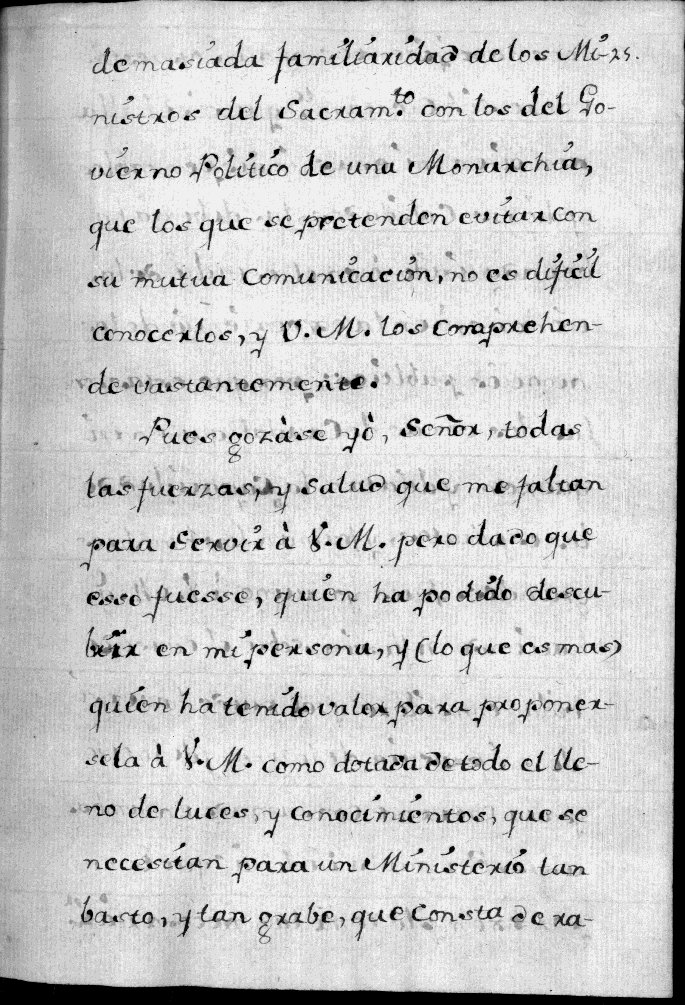 demasiada familiaridad de los Mi- 25.
nistros del Sacram.to con los del Go-
vierno Politico de una Monarchia,
que los que se pretenden evitar con
su mutua Comunicacion, no es dificil
conocerlos, y V. M. los comprehen-
de vastantemente.
Pues gozàse yò, Señor, todas
las fuerzas, y salud que me faltan
para Servir à V. M. pero dado que
esso fuesse, quien ha podido descu-
brir en mi persona, y (lo que es mas)
quien ha tenido valor para proponer-
sela à V. M. como dotada de todo el lle-
no de luces, y conocimientos, que se
necesitan para un Ministerio tan
basto, y tan grabe, que Consta de ra-